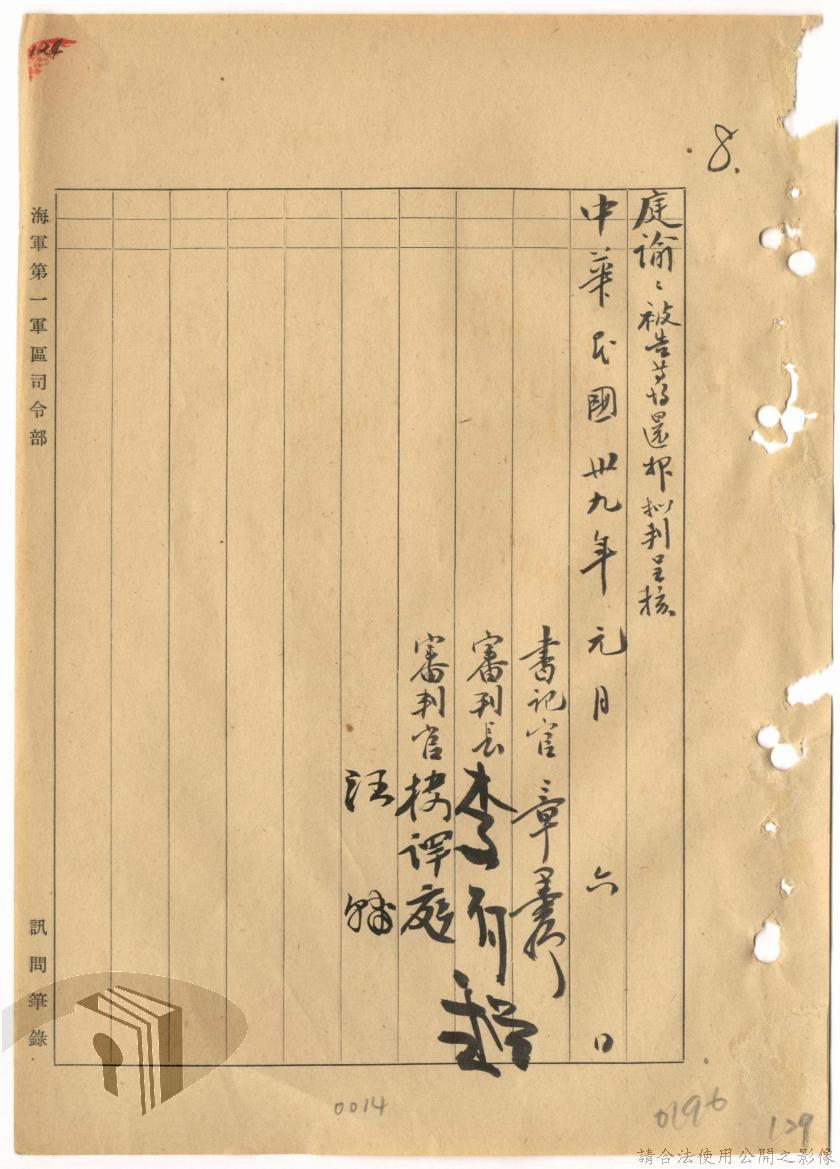 8.
庭諭:被告等還押拟判呈核
中華民國卅九年元月六日
書記官 章
審判長 李
審判官 樓譯庭
汪
海軍第一軍區司令部
訊問筆錄
124
0014
0196
129
請合法使用公開之影像